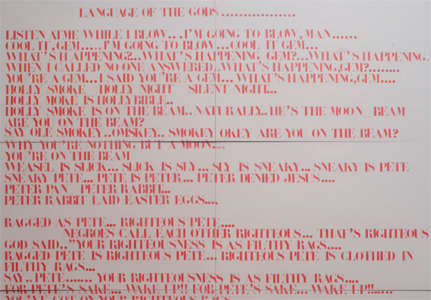 LANGUAGE OF THE GODS................
LISTEN AT ME WHILE I BLOW....I'M GOING TO BLOW, MAN......
COOL IT, GEM......I'M GOING TO BLOW...COOL IT GEM....
WHAT'S HAPPENING?...WHAT'S HAPPENING, GEM?...WHAT'S HAPPENING.
WHEN I CALLED NO ONE ANSWERED..WHAT'S HAPPENING,GEM?........
YOU'RE A GEM...I SAID YOU'RE A GEM... WHAT'S HAPPENING,GEM....
HOLLY SMOKE HOLLY NIGHT SILENT NIGHT...
HOLLY MOKE IS HOLLY BIBLE..
HOLLY SMOKE IS ON THE BEAM..NATURALLY..HE'S THE MOON BEAM
ARE YOU ON THE BEAM?
SAY OLE SMOKEY ..OMSKEY.. SMOKEY OKEY ARE YOU ON THE BEAM?
WHY YOU'RE NOTHING BUT A MOON....
YOU'RE ON THE BEAM
WEASEL IS SLICK... SLICK IS SLY... SLY IS SNEAKY... SNEAKY IS PETE
SNEAKY PETE... PETE IS PETER... PETER DENIED JESUS....
PETER PAN PETER RABBIT...
PETER RABBIT LAID EASTER EGGS...,
RAGGED AS PETE... RIGHTEOUS PETE....
NEGROES CALL EACH OTHER RIGHTEOUS... THAT'S RIGHTEOUS
GOD SAID.."YOUR RIGHTEOUSNESS IS AS FILTHY RAGS....
RAGGED PETE IS RIGHTEOUS PETE... RIGHTEOUS PETE IS CLOTHED IN
FILTHY RAGS...
SAY..PETE...... YOUR RIGHTEOUSNESS IS AS FILTHY RAGS....
FOR PETE'S SAKE... WAKE UP!! FOR PETE'S SAKE... WAKE UP!!.....
YOU'VE GOT ON YOUR RIGHTEOUS RAGS